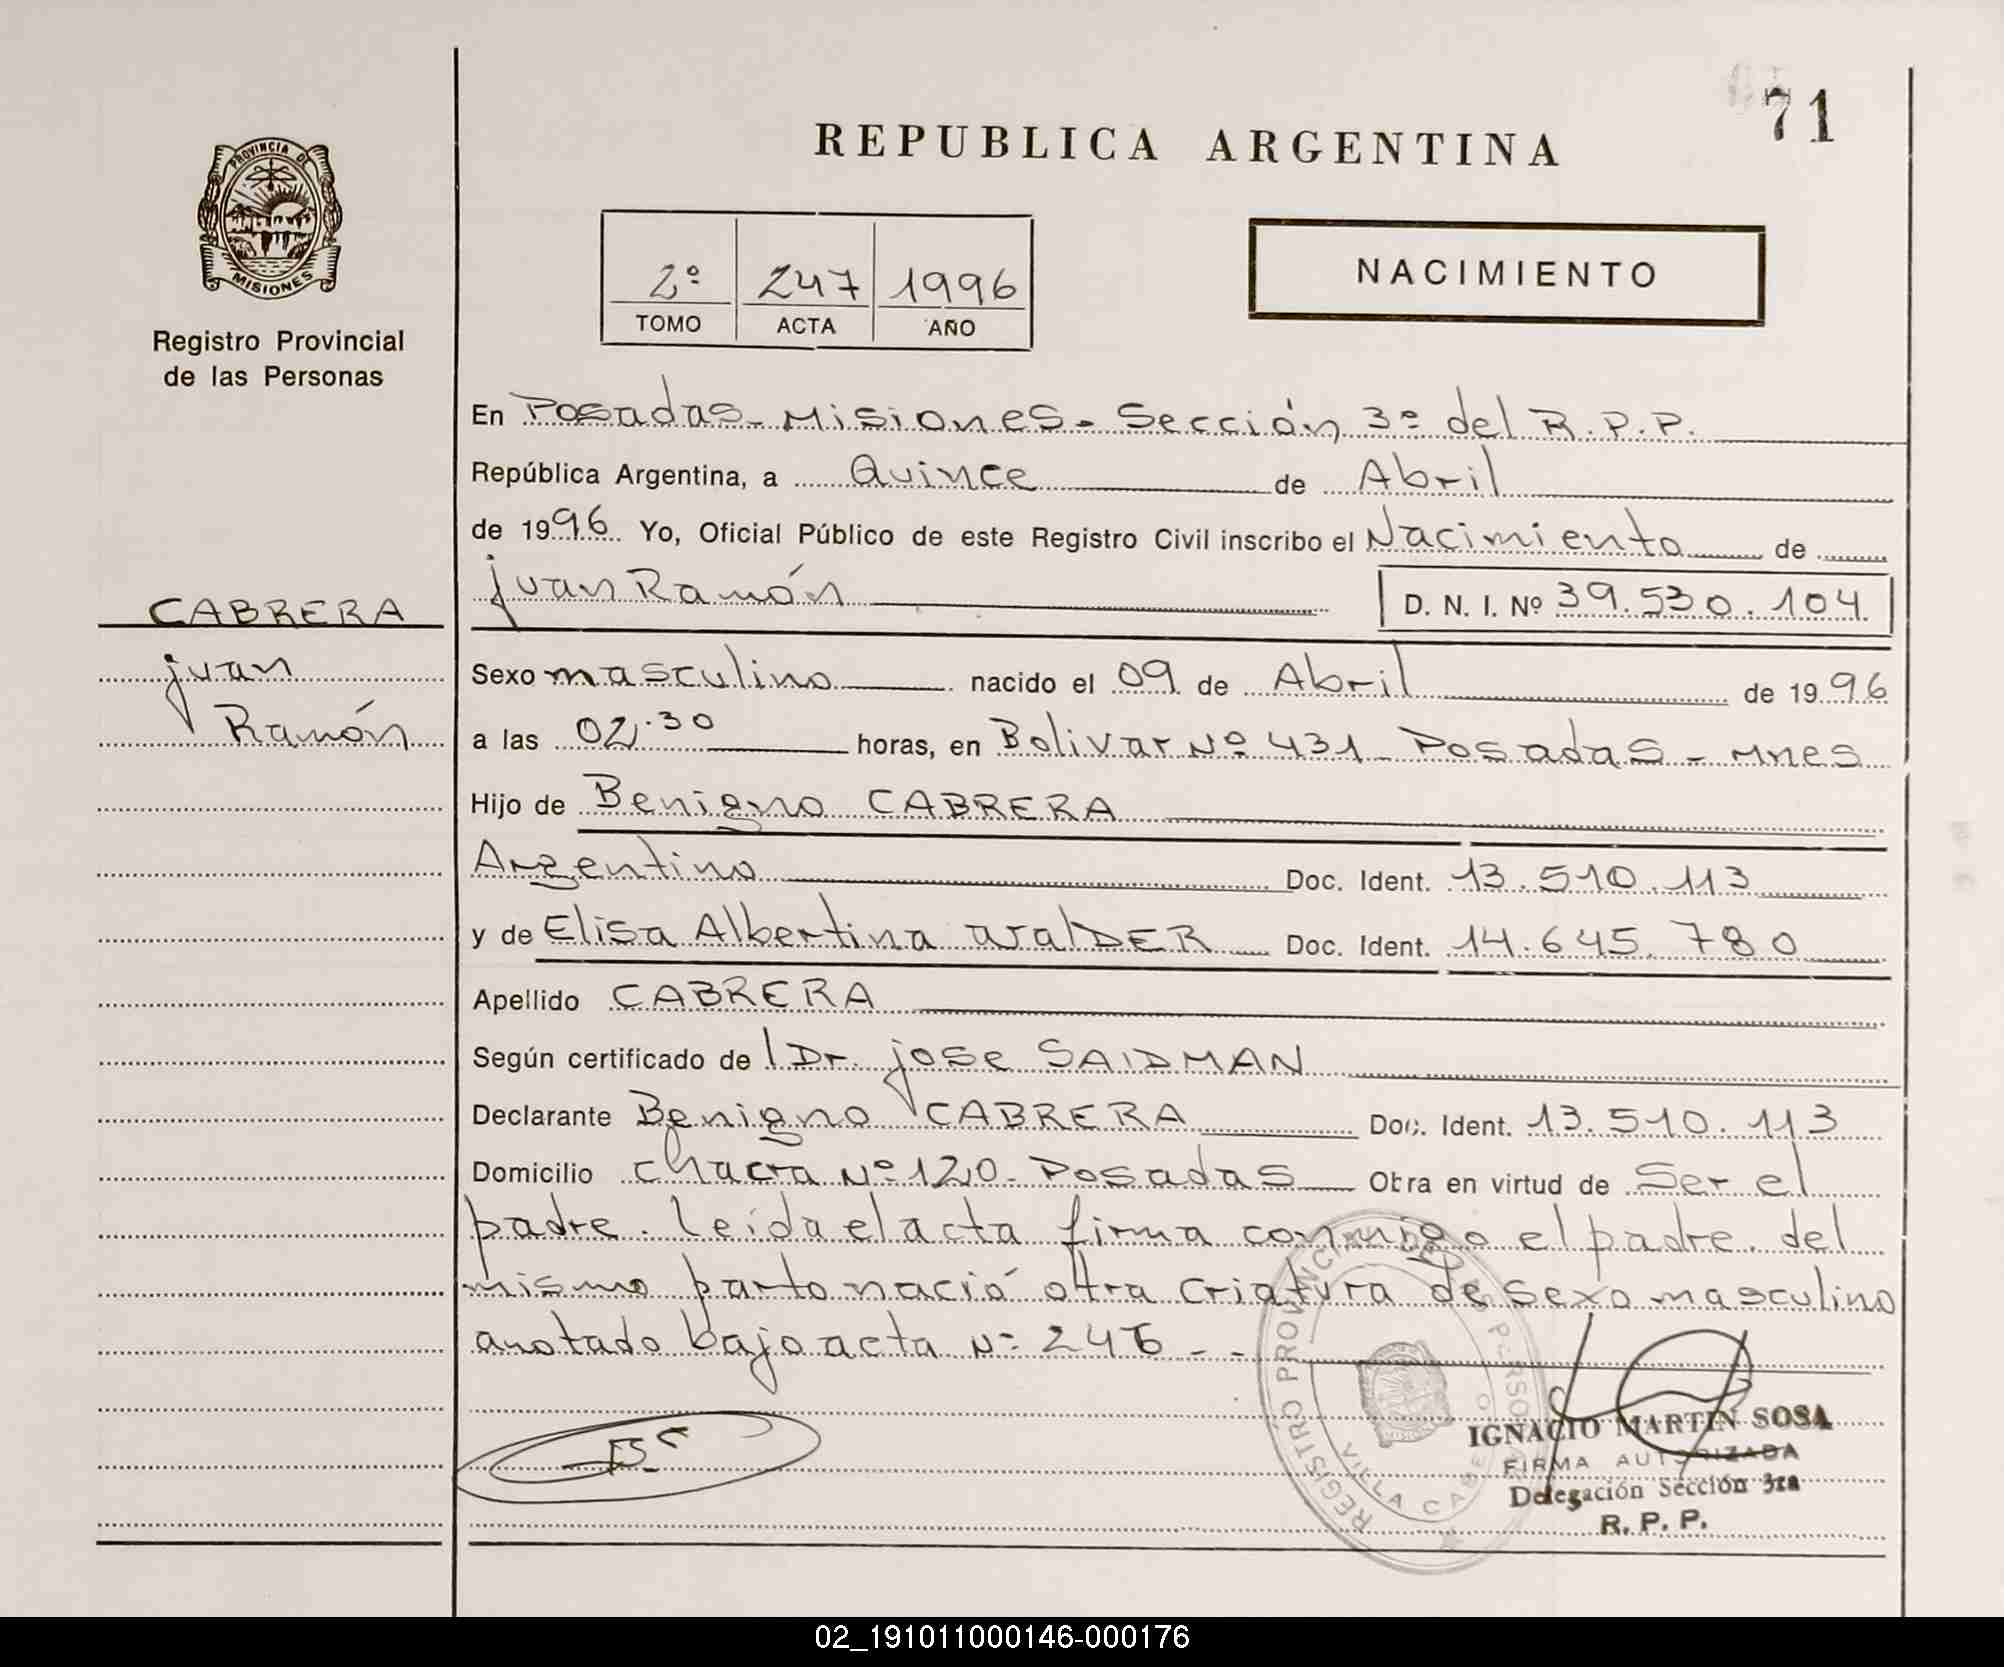 71
REPUBLICA ARGENTINA
PROVINCIA DE
MISIONES
Registro Provincial
de las Personas
2º 247 1996
TOMO ACTA AÑO
NACIMIENTO
En Posadas - Misiones - Sección 3º del R.P.P.
República Argentina, a Quince de Abril
de 1996 Yo, Oficial Público de este Registro Civil inscribo el Nacimiento de
Juan Ramón D. N. I. Nº 39.530.104
CABRERA
Juan
Ramón
Sexo masculino nacido el 09 de Abril de 1996
a las 02.30 horas, en Bolivar Nº 431 - Posadas - Mnes
Hijo de Benigno CABRERA
Argentino Doc. Ident. 13.510.113
y de Elisa Albertina Doc. Ident. 14.645.780
Apellido CABRERA
Según certificado de l Dr. Jose SAIDMAN
Declarante Benigno CABRERA Doc. Ident. 13.510.113
Domicilio Chacra Nº 120 - Posadas Obra en virtud de Ser el
padre. leída el acta firma conmigo el padre. del
mismo parto nació otra criatura de sexo masculino
anotado bajo acta Nº 246 - -
REGISTRO PROVINCIAL DE LAS PERSONAS
VILLA CABELLO
IGNACIO MARTIN SOSA
FIRMA AUTORIZADA
Delegación Sección 3ra
R. P. P.
02_191011000146-000176